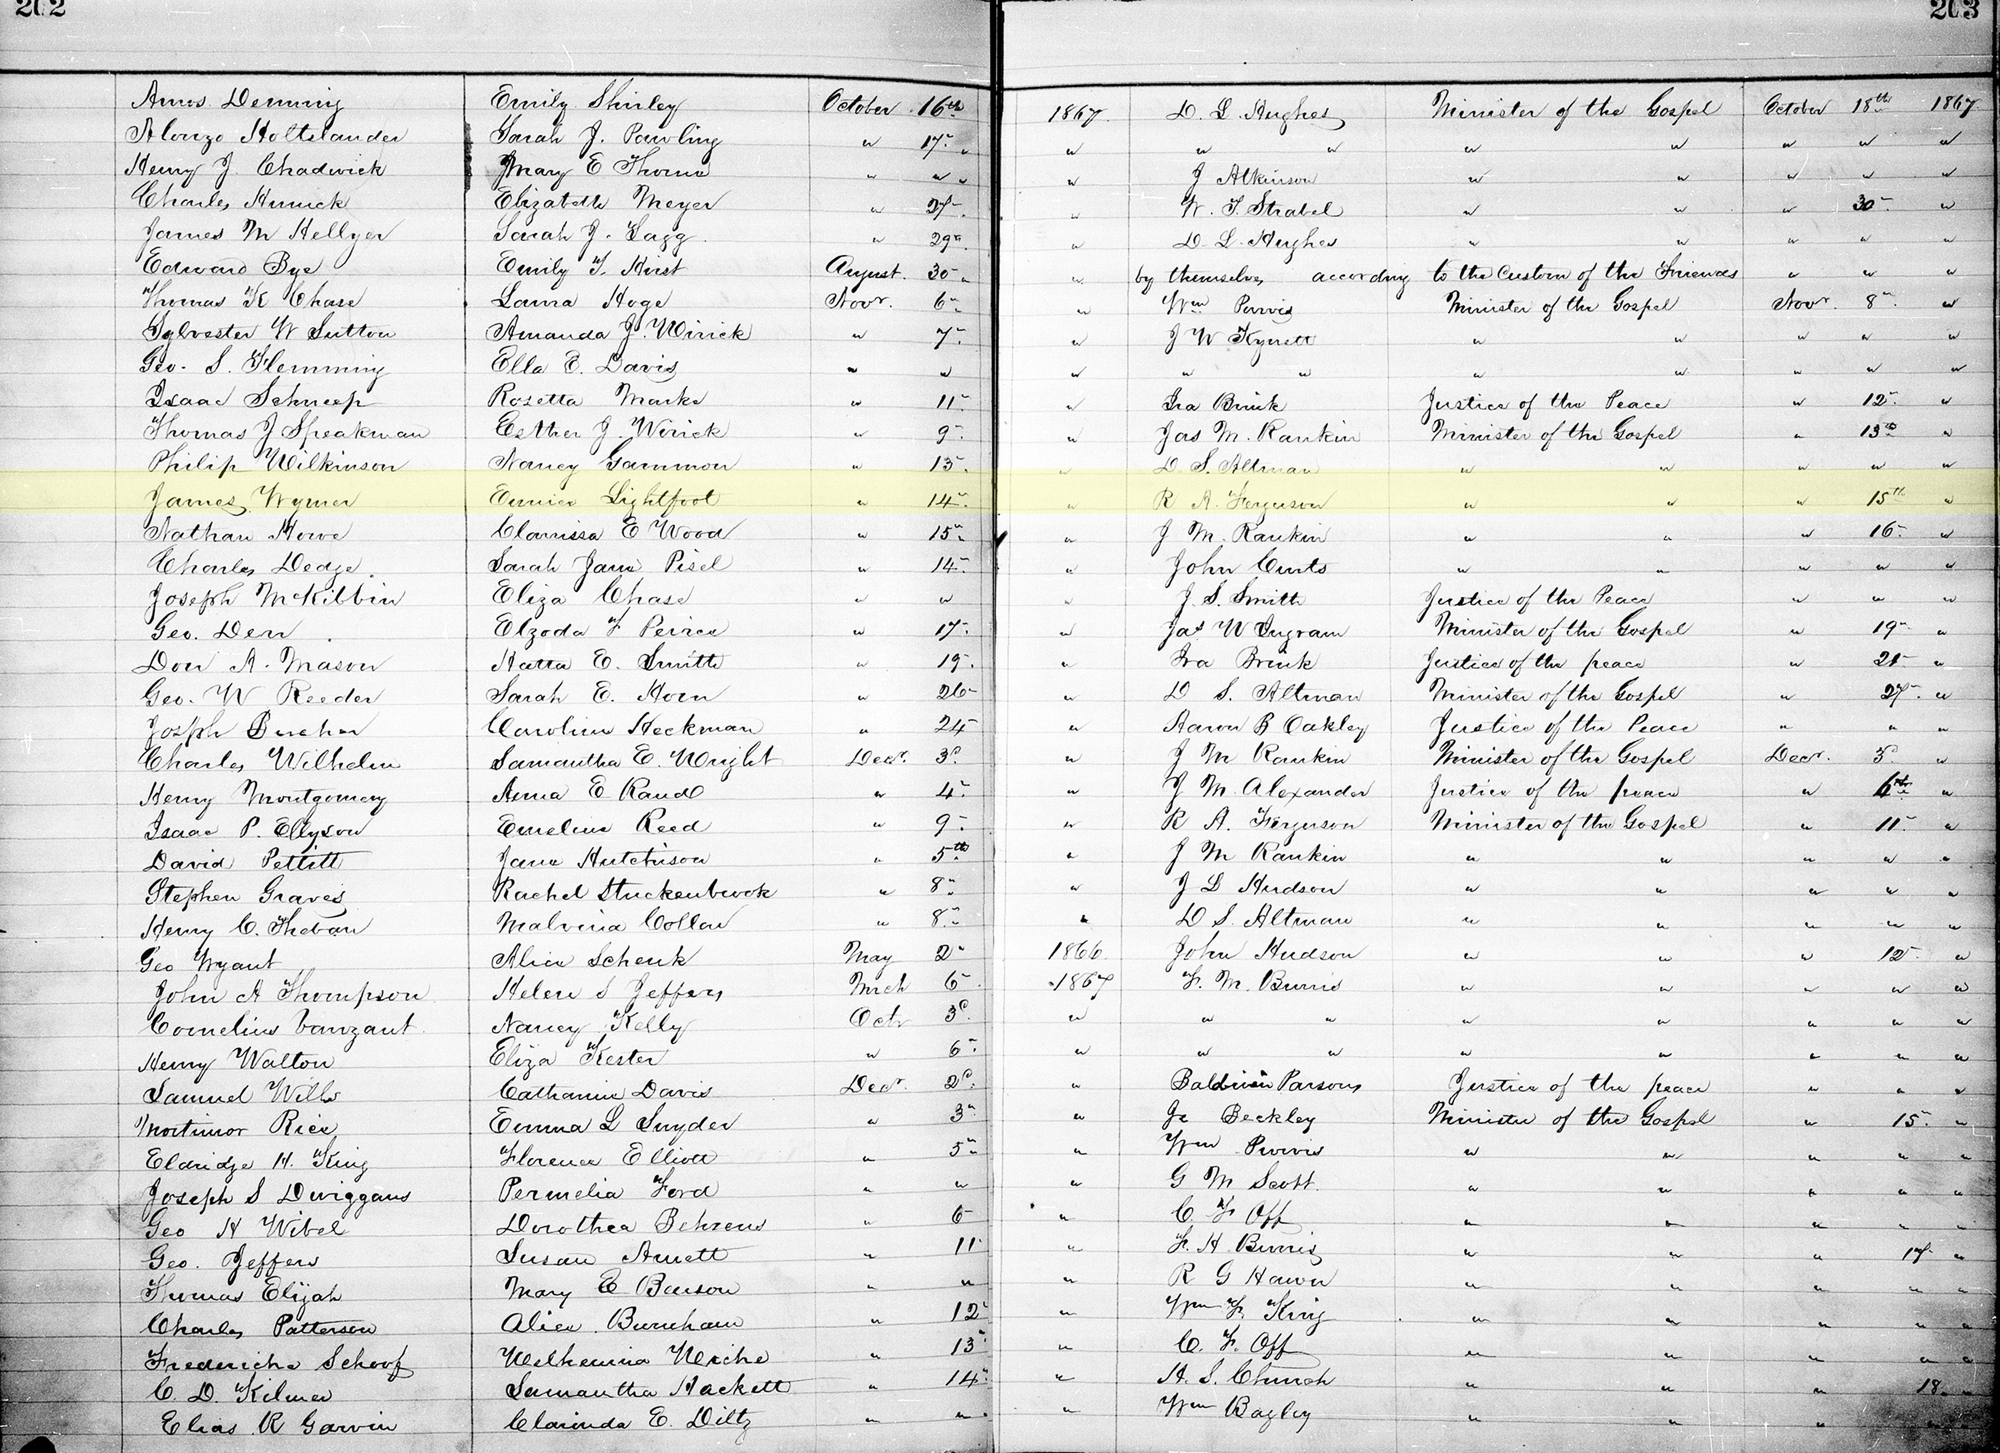 202 203
Amos Denning Emily Shirley October 16th 1867 D. L. Hughes Minister of the Gospel October 18th 1867
Alonzo Holtslander Sarah J. Pawling " 17" " " " " " " " "
Henry J. Chadwick Mary E Thorne " " " " J Atkinson " " " " "
Charles Elizabeth Meyer " 27" " W. F. Strabel " " " 30" "
James M Hellyer Sarah J. Lagg " 29" " D. L. Hughes " " " " "
Edward Bye Emily T. Hirst August. 30" " by themselves according to the Custom of the Friends " " "
Thomas K Chase Laura Hoge Novr. 6" " Wm Purvis Minister of the Gospel Novr. 8" "
Sylvester W Sutton Amanda J. Wirick " 7" " J W Kynett " " " " "
Geo. S. Flemming Ella E. Davis " " " " " " " " " "
Isaac Schneep Rosetta Marks " 11" " Ira Brink Justice of the Peace " 12" "
Thomas J. Speakman Esther J. Wirick " 9" " Jas M. Rankin Minister of the Gospel " 13th "
Philip Wilkinson Nancy Gammon " 13" " D. S. Altman " " " " "
James Wymer Eunice Lightfoot " 14" " R A. Ferguson " " " 15th "
Nathan Howe Clarissa E Wood " 15" " J M. Rankin " " " 16" "
Charles Dedge. Sarah Jane Pisel " 14" " John Curts " " " " "
Joseph McKibbin Eliza Chase " " " J. S. Smith Justice of the Peace " " "
Geo. Derr Elzoda F Peirce " 17" " Jas W Ingram Minister of the Gospel " 19" "
Don A. Mason Hatta E. Smith " 19" " Ira Brink Justice of the peace " 21" "
Geo. W Reeder Sarah E. Horn " 26" " D S. Altman Minister of the Gospel " 27" "
Joseph Caroline Heckman " 24 " Aaron B Oakley Justice of the Peace " " "
Charles Wilhelm Samantha E. Wright Decr. 3d " J M Rankin Minister of the Gospel Decr. 5" "
Henry Montgomery Anna E Rand " 4" " J M. Alexander Justice of the peace " 6th "
Isaac P. Ellyson Emeline Reed " 9" " R A. Ferguson Minister of the Gospel " 11" "
David Pettitt Jane Hutchison " 5th " J M Rankin " " " " "
Stephen Graves Rachel Stuckenbrook " 8" " J L Hudson " " " " "
Henry C. Theban Malvina " 8" " D S. Altman " " " " "
Geo Wyant Alice Schenk May 2" 1866 John Hudson " " " 12" "
John A Thompson Helen S Jeffers Mrch 6" 1867 F. M. Burris " " " " "
Cornelius Vanzant Nancy Kelly Octr 3d " " " " " " " "
Henry Walton Eliza Kester " 6" " " " " " " " "
Samuel Wills Catharine Davis Decr. 2d " Baldwin Parsons Justice of the peace " " "
Mortimor Rice Emma L Snyder " 3" " Beckley Minister of the Gospel " 15" "
Eldridge H. King Florence Elliott " 5" " Wm Purvis " " " " "
Joseph S Dwiggans Permelia Ford " " " G M Scott " " " " "
Geo H Wibel Dorothea Behrens " 6 " C. F. Off " " " " "
Geo. Jeffers Susan Arnett " 11 " F. H. Burris " " " 17" "
Thomas Elijah Mary E Banson " " " R G Hawn " " " " "
Charles Patterson Alice Burnham " 12" " Wm F. King " " " " "
Fredericke Schoof " 13" " C. F. Off " " " " "
C. D. Kilmer Samantha Hackett " 14" " H. S. Church " " " 18. "
Elias R Garvin Clarinda E. Diltz " " " Wm Bagley " " " " "